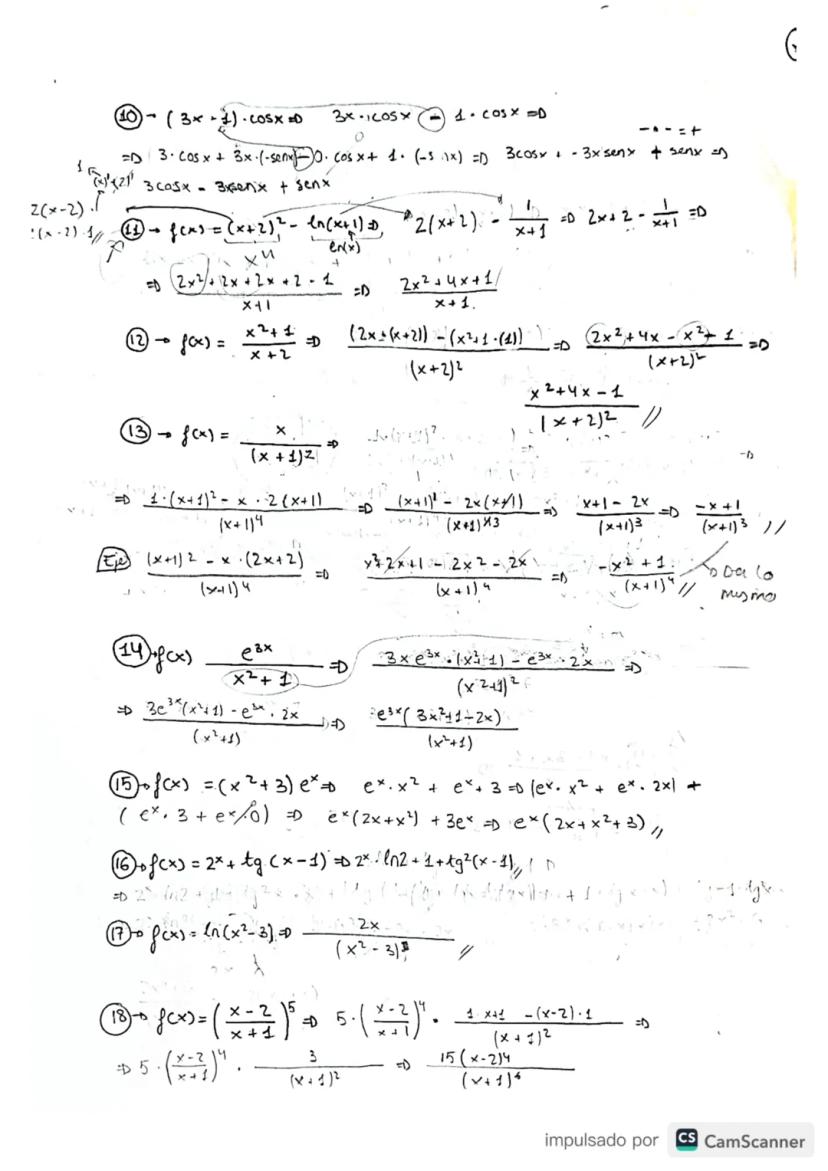 (10) → (3x - 1) · cosx ⇒ 3x · cosx - 1 · cosx ⇒
- · - = +
⇒ 3 · cosx + 3x · (-senx) - 0 · cosx + 1 · (-s x) ⇒ 3cosx + -3xsenx + senx ⇒
3cosx - 3xsenx + senx
2(x-2) · 1
(11) → f(x) = (x+2)² - ln(x+1) ⇒ 2(x+2) - 1/(x+1) ⇒ 2x+2 - 1/(x+1) ⇒
ln(x)
⇒ (2x² + 2x + 2x + 2 - 1)/(x+1) ⇒ (2x² + 4x + 1)/(x+1)
(12) → f(x) = (x²+1)/(x+2) ⇒ ((2x·(x+2)) - (x²+1·(1)))/(x+2)² ⇒ (2x² + 4x - x² - 1)/(x+2)² ⇒
(x²+4x-1)/(x+2)² //
(13) → f(x) = x/(x+1)² ⇒
⇒ (1·(x+1)² - x · 2(x+1))/(x+1)⁴ ⇒ ((x+1)² - 2x(x+1))/(x+1)⁴³ ⇒ (x+1-2x)/(x+1)³ ⇒ (-x+1)/(x+1)³ //
Eje ((x+1)² - x · (2x+2))/(x+1)⁴ ⇒ (x²+2x+1 - 2x² - 2x)/(x+1)⁴ ⇒ (-x²+1)/(x+1)⁴ // → Da lo
mismo
(14) → f(x) e³ˣ/(x²+1) ⇒ (3xe³ˣ · (x²+1) - e³ˣ · 2x)/(x²+1)² ⇒
⇒ (3e³ˣ(x²+1) - e³ˣ · 2x)/(x²+1) ⇒ e³ˣ(3x²+1-2x)/(x²+1)
(15) → f(x) = (x²+3)eˣ ⇒ eˣ·x² + eˣ·3 ⇒ (eˣ·x² + eˣ·2x) +
(eˣ·3 + eˣ·0) ⇒ eˣ(2x+x²) + 3eˣ ⇒ eˣ(2x+x²+3) //
(16) → f(x) = 2ˣ + tg(x-1) ⇒ 2ˣ · ln2 + 1 + tg²(x-1) //
(17) → f(x) = ln(x²-3) ⇒ 2x/(x²-3) //
(18) → f(x) = ((x-2)/(x+1))⁵ ⇒ 5·((x-2)/(x+1))⁴ · (1·x+1 - (x-2)·1)/(x+1)² ⇒
⇒ 5·((x-2)/(x+1))⁴ · 3/(x+1)² ⇒ 15(x-2)⁴/(x+1)⁶
impulsado por CS CamScanner